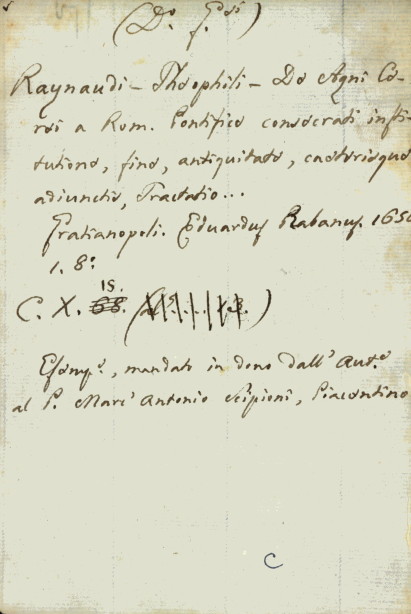 (Do. f. Gsi)
Raynaudi - Theophili - De Agni Ce-
rei a Rom. Pontifice consecrati insti-
tutione, fine, antiquitate, caeterisque
adiunctis, Tractatio...
Gratianopoli. Eduardus Rabanus. 1656
1. 8°
15.
C. X. 68.
Esemp.e, mandato in dono dall' Aut.e
al P. Marc' Antonio Scipioni, Piacentino
C